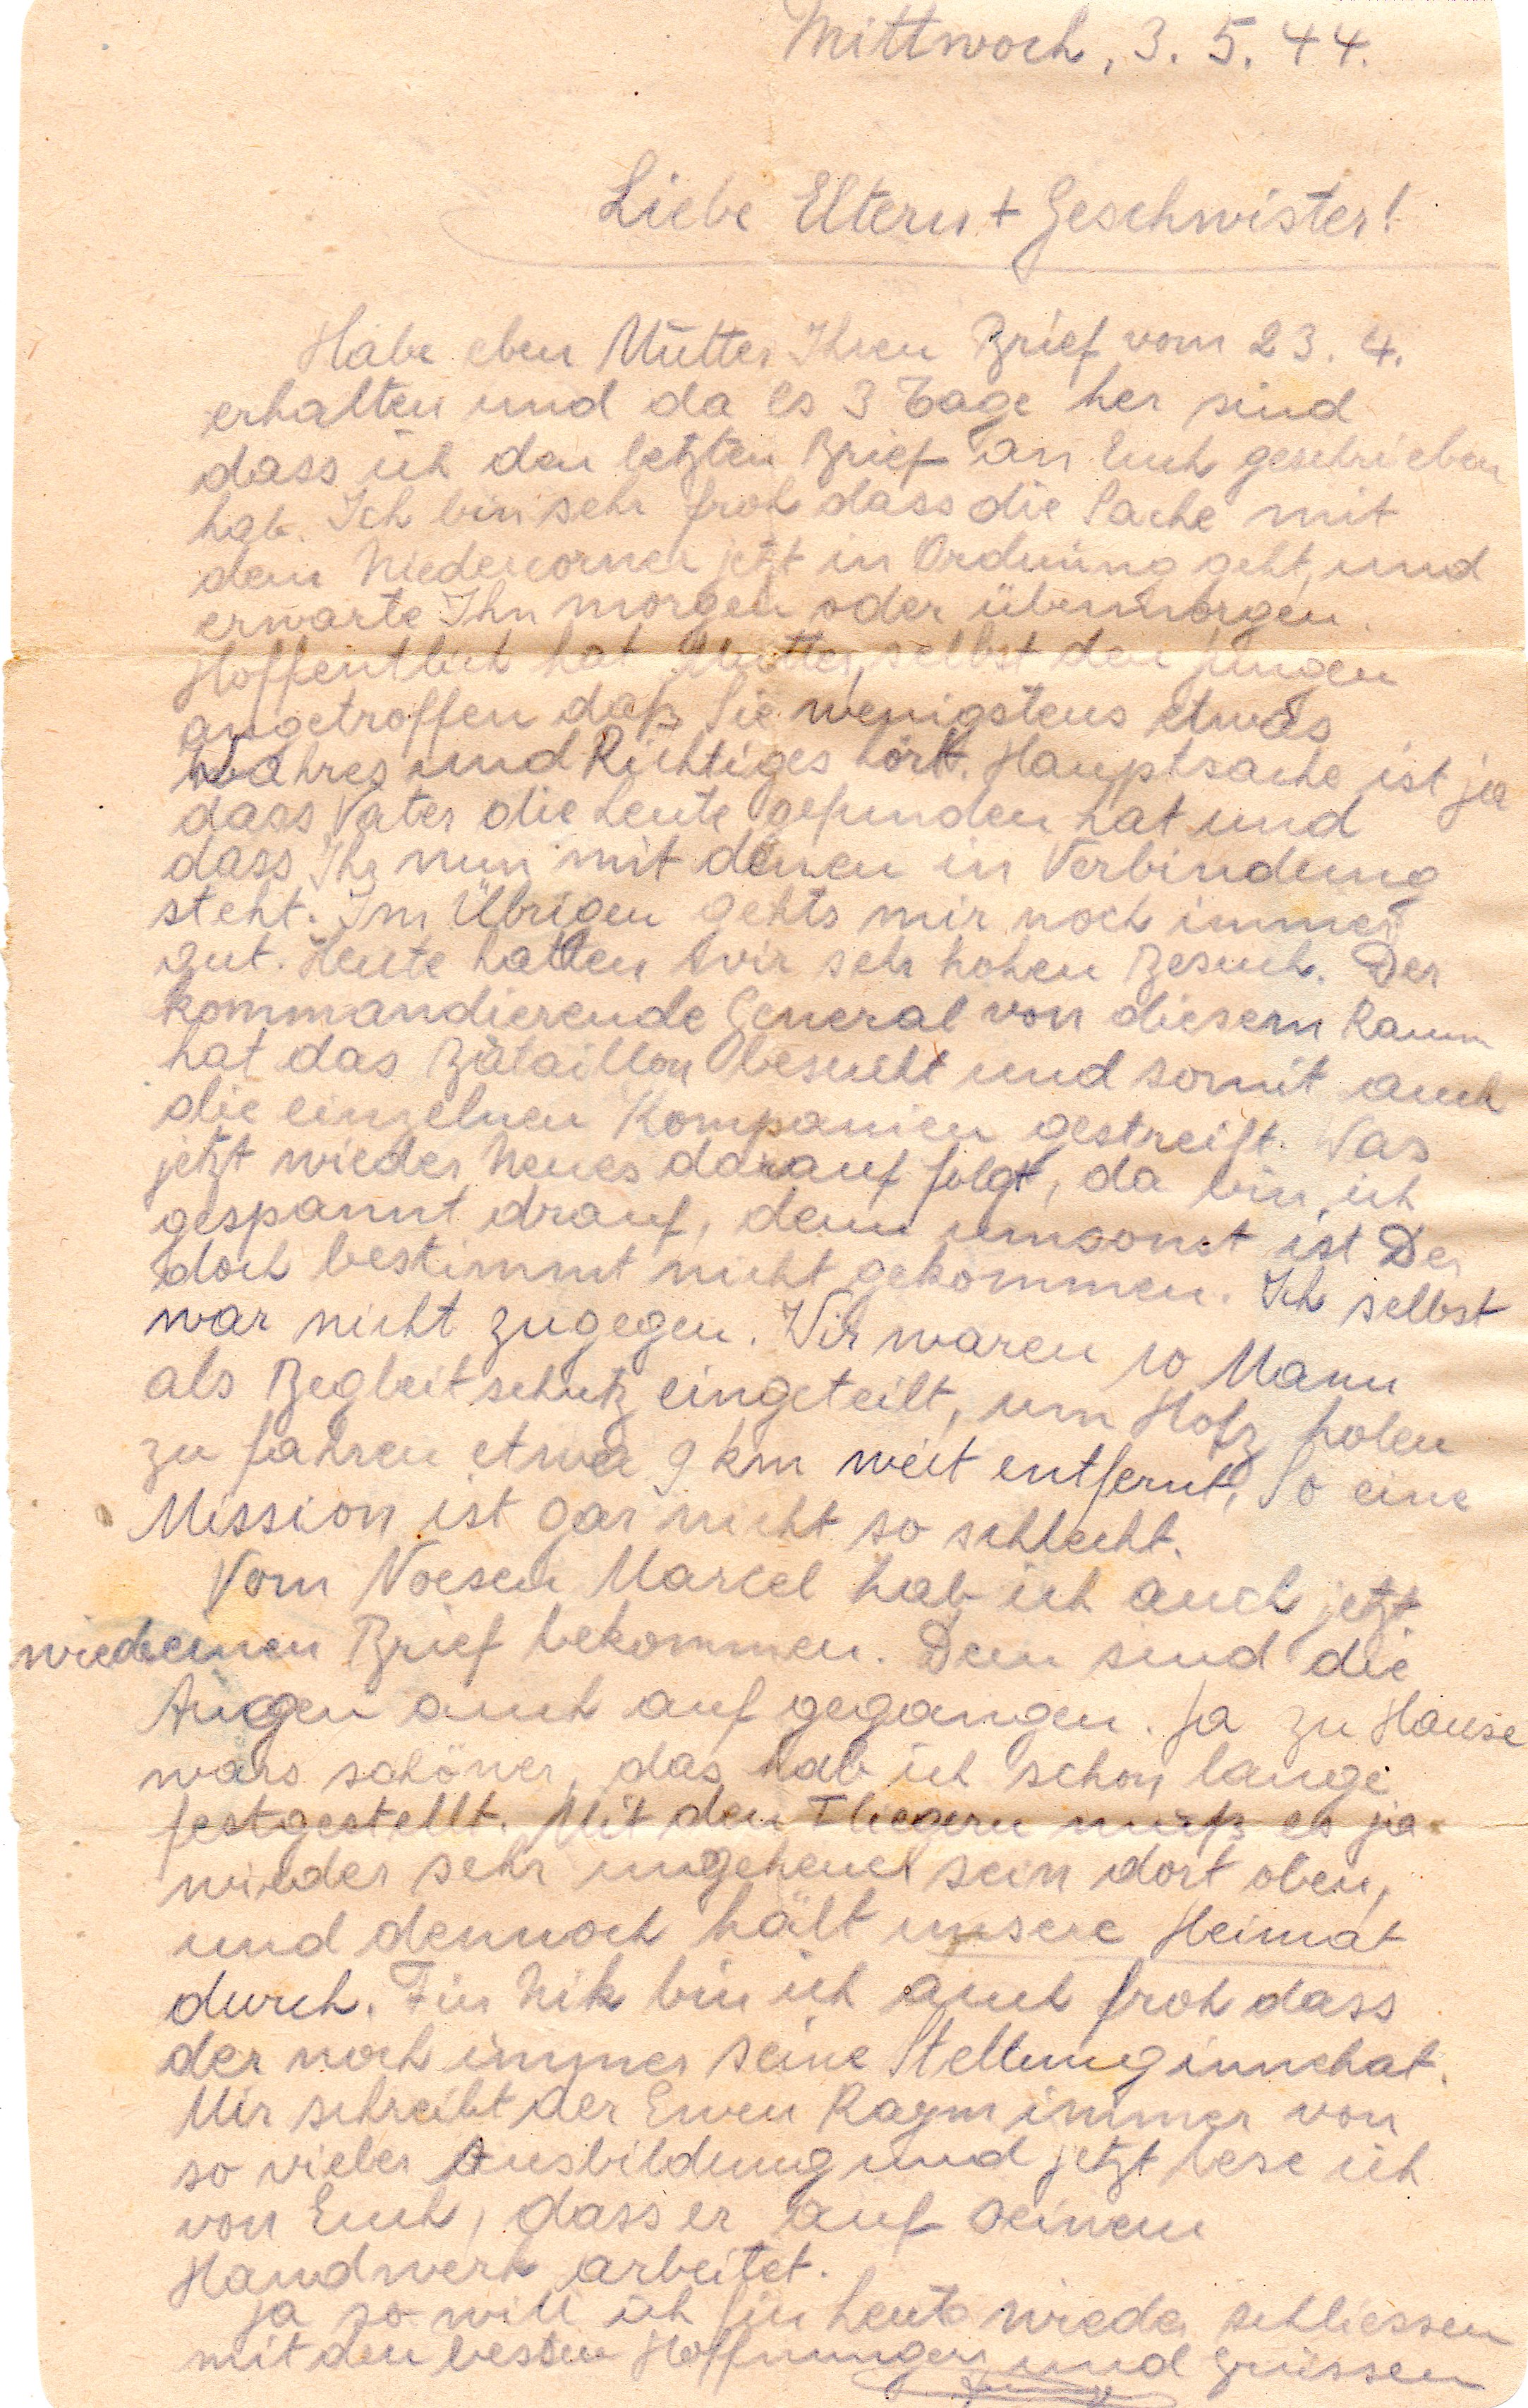 Mittwoch, 3. 5. 44.
Liebe Eltern + Geschwister!
Habe eben Mutter Ihren Brief vom 23. 4.
erhalten und da es 3 Tage her sind
dass ich den letzten Brief an Euch geschrieben
hab. Ich bin sehr froh dass die Sache mit
dem Niedercorner jetzt in Ordnung geht, und
erwarte Ihn morgen oder übermorgen.
Hoffentlich hat Mutter selbst den Jungen
angetroffen daß Sie wenigstens etwas
Wahres und Richtiges hört. Hauptsache ist ja
dass Vater die Leute gefunden hat und
dass Ihr nun mit denen in Verbindung
steht. Im Übrigen gehts mir noch immer
gut. Heute hatten Wir sehr hohen Besuch. Der
kommandierende General von diesem Raum
hat das Bataillon besucht und somit auch
die einzelnen Kompanien gestreift. Was
jetzt wieder Neues darauf folgt, da bin ich
gespannt drauf, denn umsonst ist Der
doch bestimmt nicht gekommen. Ich selbst
war nicht zugegen. Wir waren 10 Mann
als Begleitschutz eingeteilt, um Holz holen
zu fahren etwa 9 km weit entfernt. So eine
Mission ist gar nicht so schlecht.
Vom Noesen Marcel hab ich auch jetzt
wieder einen Brief bekommen. Dem sind die
Augen auch auf gegangen. Ja zu Hause
wärs schöner, das hab ich schon lange
festgestellt. Mit den Fliegern muß es ja
wieder sehr ungeheuer sein dort oben,
und dennoch hält unsere Heimat
durch. Für Nik bin ich auch froh dass
der noch immer seine Stellung innehat.
Mir schreibt der Ewen Raym immer von
so vieler Ausbildung und jetzt lese ich
von Euch, dass er auf seinem
Handwerk arbeitet.
Ja so will ich für heute wieder schliessen
mit den besten Hoffnungen und Grüssen